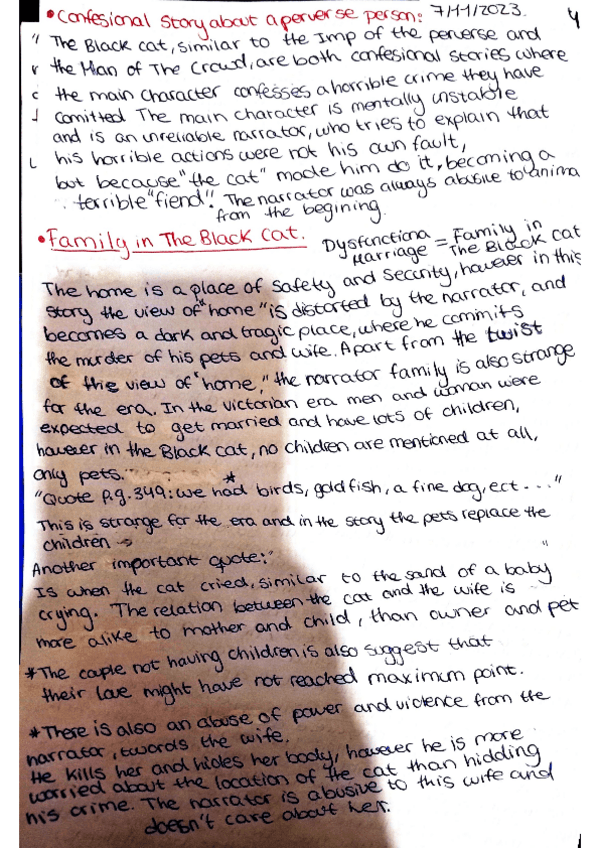 • Confesional Story about a perverse person: 7/11/2023. 4
The Black cat, similar to the Imp of the perverse and
the Man of The Crowd, are both confesional stories where
the main character confesses a horrible crime they have
comitted The main character is mentally unstable
and is an unreliable narrator, who tries to explain that
his horrible actions were not his own fault,
but because "the cat" made him do it, becoming a
terrible "fiend". The narrator was always abusive to anima
from the begining.
• Family in The Black Cat.
Dysfunctiona Marriage = Family in The Black cat
The home is a place of safety and security, however in this
story the view of "home" is distorted by the narrator, and
becomes a dark and tragic place, where he commits
the murder of his pets and wife. Apart from the twist
of the view of "home," the narrator family is also strange
for the era. In the victorian era men and woman were
expected to get married and have lots of children,
however in the Black cat, no children are mentioned at all,
only pets. *
"Quote p.g. 349: we had birds, gold fish, a fine dog, ect ..."
This is strange for the era and in the story the pets replace the
children →
Another important quote: "
Is when the cat cried, similar to the sand of a baby "
crying. The relation between the cat and the wife is
more alike to mother and child, than owner and pet
* The couple not having children is also suggest that
their love might have not reached maximum point.
* There is also an abuse of power and violence from the
narrator, twords the wife.
He kills her and hides her body, however he is more
worried about the location of the cat than hidding
his crime. The narrator is abusive to this wife and
doesn't care about her.